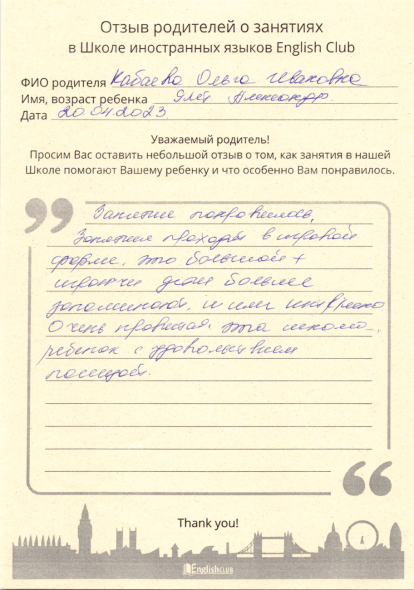 Отзыв родителей о занятиях
в Школе иностранных языков English Club
ФИО родителя Кабаева Ольга Ивановна
Имя, возраст ребенка 9 лет Александр
Дата 20.04.2023
Уважаемый родитель!
Просим Вас оставить небольшой отзыв о том, как занятия в нашей
Школе помогают Вашему ребенку и что особенно Вам понравилось.
Занятие понравилось,
Занятия проходят в игровой
форме, это большой +
играючи дети больше
запоминают, и им интересно
Очень нравится эта школа,
ребенок с удовольствием
посещает.
Thank you!
EnglishClub